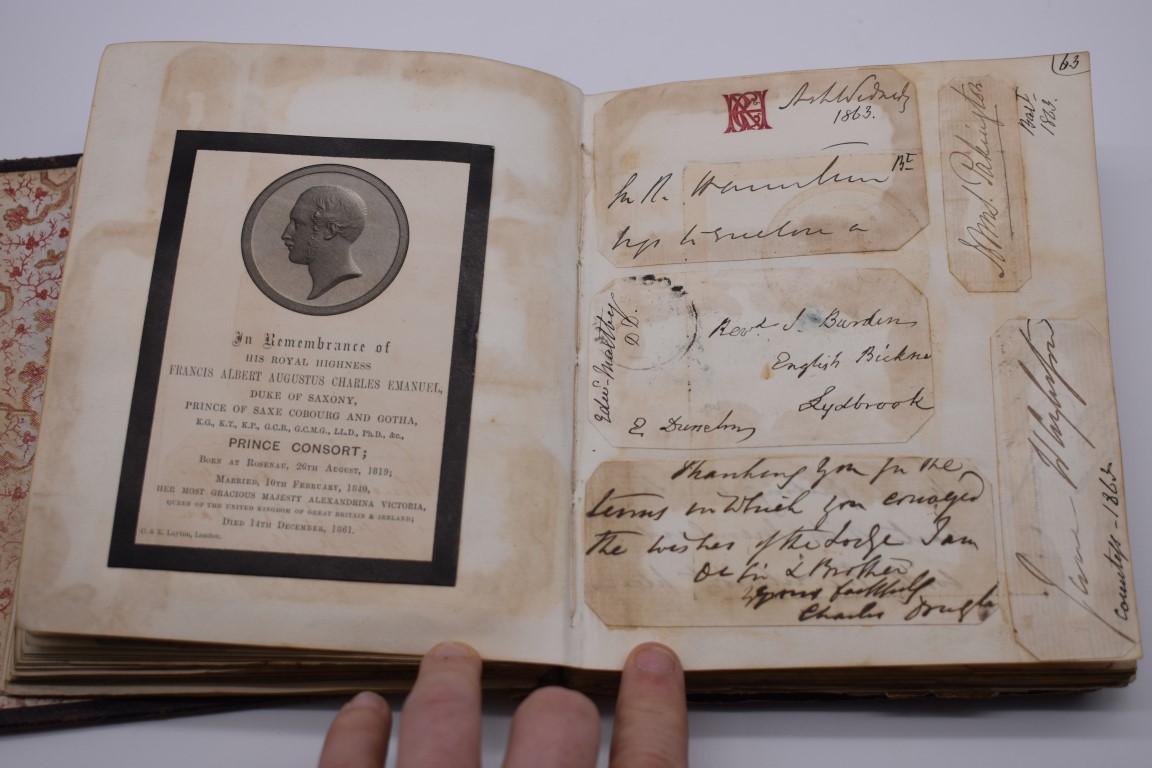 In Remembrance of
HIS ROYAL HIGHNESS
FRANCIS ALBERT AUGUSTUS CHARLES EMANUEL,
DUKE OF SAXONY,
PRINCE OF SAXE COBOURG AND GOTHA,
K.G., K.T., K.P., G.C.B., G.C.M.G., LL.D., Ph.D., &c.,
PRINCE CONSORT;
BORN AT ROSENAU, 26TH AUGUST, 1819;
MARRIED, 10TH FEBRUARY, 1840,
HER MOST GRACIOUS MAJESTY ALEXANDRINA VICTORIA,
QUEEN OF THE UNITED KINGDOM OF GREAT BRITAIN & IRELAND;
DIED 14TH DECEMBER, 1861.
C. & E. Layton, London.
63
Ash Wednesdy
1863.
Bt
John S. Pakington
Bart
1863.
Edwd Maltby
D.D.
Revd J. Burdon
English Bickn
Lydbrook
E Dunelm
Thanking you for the
terms in which you conveyed
the wishes of the Lodge I am
Dr Sir & Brother
yours faithfully
Charles
Jane
Countess - 1862